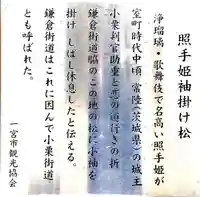 照手姫袖掛け松
浄瑠璃・歌舞伎で名高い照手姫が
室町時代中頃、常陸（茨城県）の城主
小栗判官助重と恋の道行きの折
鎌倉街道脇のこの地の松に小袖を
掛け しばし休息したと伝える。
鎌倉街道はこれに因んで小栗街道
とも呼ばれた。
一宮市観光協会